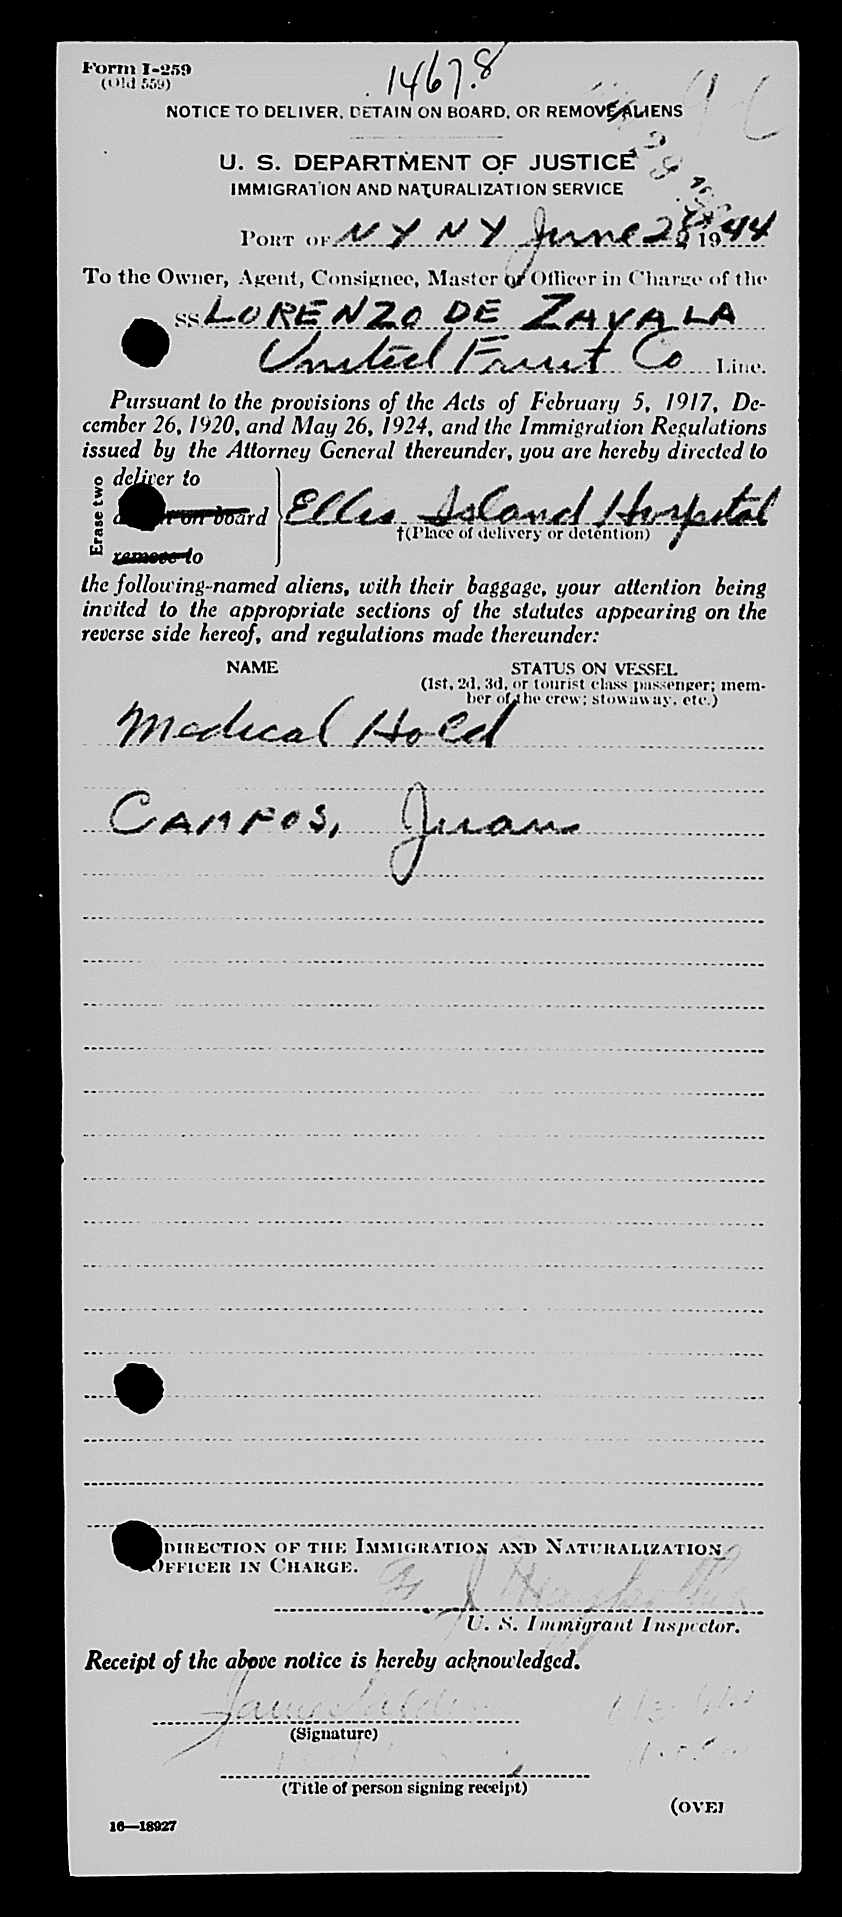 Form I-259
(Old 559)
14678
NOTICE TO DELIVER, DETAIN ON BOARD, OR REMOVE ALIENS
U. S. DEPARTMENT OF JUSTICE
IMMIGRATION AND NATURALIZATION SERVICE
PORT OF N Y N Y June 28, 1944
To the Owner, Agent, Consignee, Master or Officer in Charge of the
SS LORENZO DE ZAVALA
United Fruit Co Line.
Pursuant to the provisions of the Acts of February 5, 1917, De-
cember 26, 1920, and May 26, 1924, and the Immigration Regulations
issued by the Attorney General thereunder, you are hereby directed to
Erase two
deliver to
on board
remove to
Ellis Island Hospital
†(Place of delivery or detention)
the following-named aliens, with their baggage, your attention being
invited to the appropriate sections of the statutes appearing on the
reverse side hereof, and regulations made thereunder:
NAME STATUS ON VESSEL
(1st, 2d, 3d, or tourist class passenger; mem-
ber of the crew; stowaway, etc.)
Medical Hold
CAMPOS, Juan
DIRECTION OF THE IMMIGRATION AND NATURALIZATION
OFFICER IN CHARGE.
U. S. Immigrant Inspector.
Receipt of the above notice is hereby acknowledged.
(Signature)
(Title of person signing receipt)
(OVER
16—18927